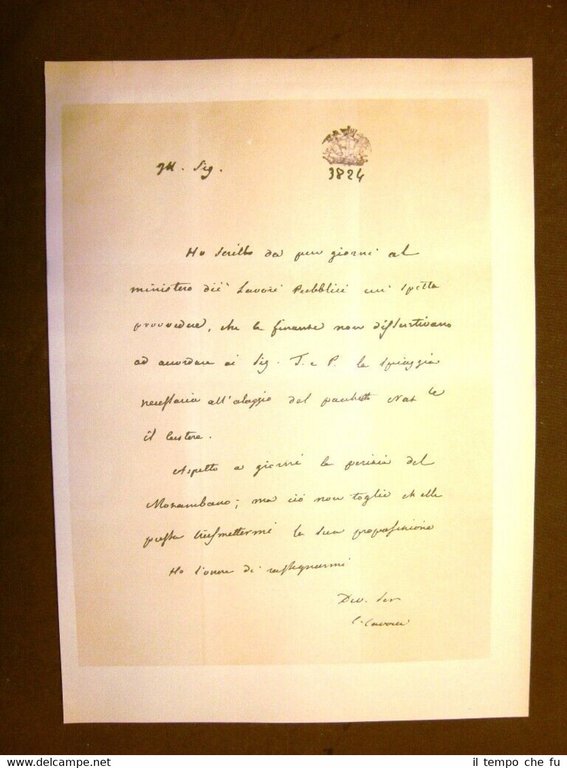 Ill. Sig.
3824
Ho scritto da più giorni al
ministero dei Lavori Pubblici cui spetta
provvedere, che le finanze non dissentivano
ad accordare ai Sig. T. e P. la spiaggia
necessaria all'alaggio del Naz le
il
Aspetto a giorni la perizia del
Mozambano; ma ciò non toglie ch'ella
possa trasmettermi la sua proposizione
Ho l'onore di rassegnarmi
Dev. Ser
C. Cavour
il tempo che fu